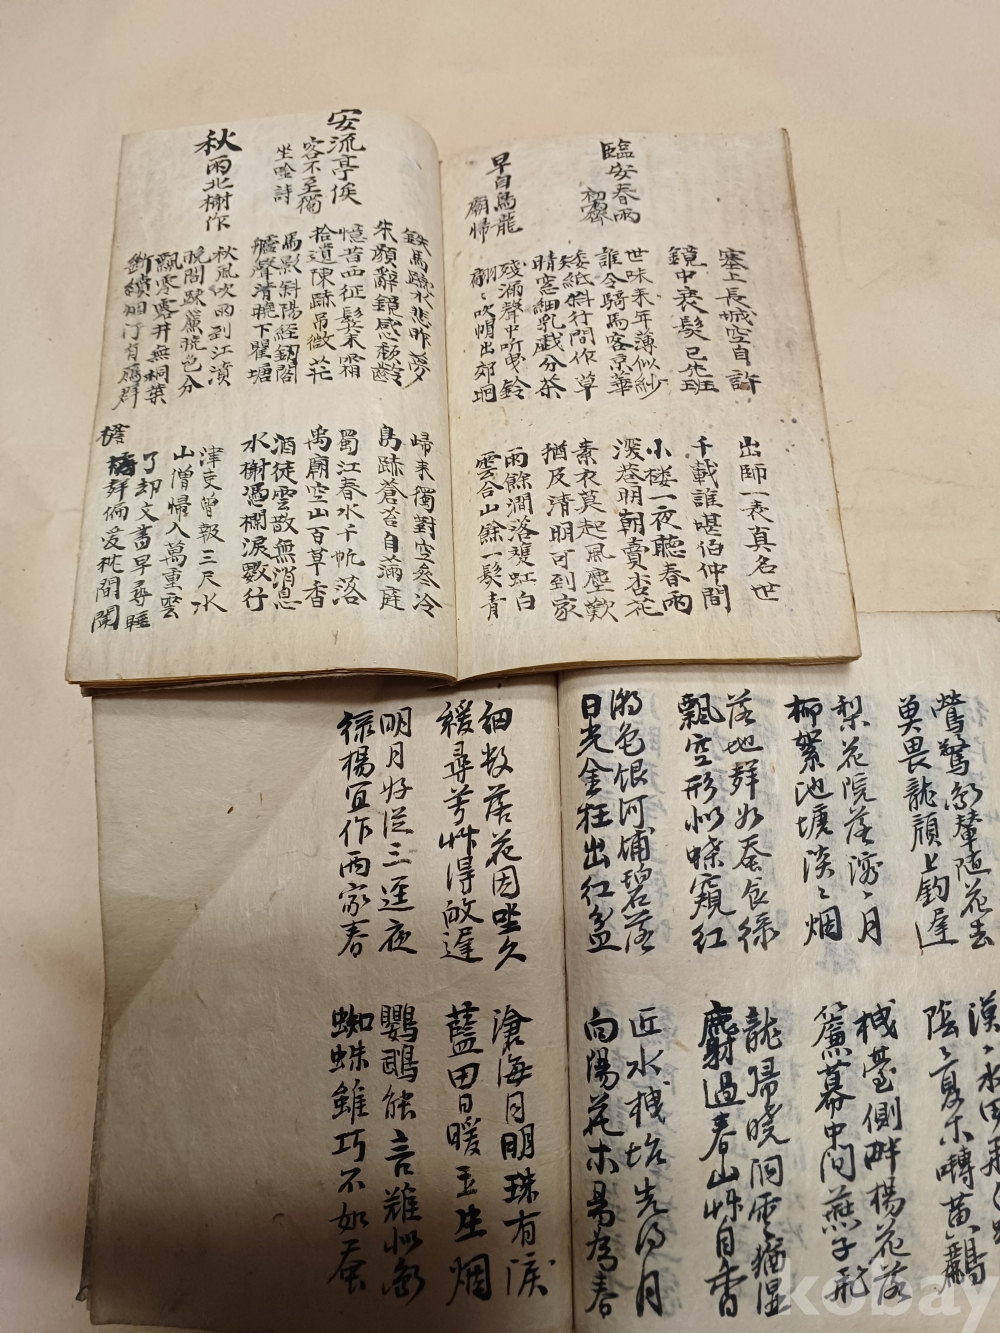 塞上長城空自許
鏡中衰髮已先班
出師一表真名世
千載誰堪伯仲間
臨安春雨
初霽
世味来年薄似紗
誰令騎馬客京華
小楼一夜聽春雨
深巷明朝賣杏花
矮紙斜行閒作草
晴窓細乳戲分茶
素衣莫起風塵歎
猶及清明可到家
早自烏龍
廟帰
殘漏聲中听曳鈴
翩〻吹帽出郊坰
雨餘澗落雙虹白
雲合山餘一髮青
鉄馬水悲昨夢
朱顔辭鏡感頽齡
歸来獨對空參冷
鳥跡蒼苔自滿庭
安流亭俟
客不至獨
坐唫詩
憶昔西征髮未霜
拾遺陳跡吊微茫
蜀江春水千帆落
禹廟空山百草香
馬影斜陽經釰閣
艫聲清曉下瞿塘
酒徒雲散無消息
水榭憑欄淚數行
秋雨北榭作
秋風吹雨到江濆
晚閤踈簾晩色分
津吏曾報三尺水
山僧帰入萬重雲
飄零露井無桐葉
斷續烟汀有鴈群
了却文書早尋睡
偏愛枕間聞
鶯驚鳳輦随花去
莫畏龍顔上釣遲
漠〻水田飛白鷺
陰〻夏木囀黄鸝
梨花院落溶〻月
柳絮池塘淡〻烟
棧臺側畔楊花落
簾幕中間燕子飛
落地群如蚕食緑
飄空形似蝶窺紅
龍帰暁洞雲猶湿
麝過春山艸自香
潮色銀河埔碧落
日光金柱出红盆
近水楼坮先得月
向陽花木易為春
細数落花因坐久
緩尋芳艸得故遲
滄海月明珠有淚
藍田日暖玉生烟
明月好従三逕夜
緑楊宜作両家春
鸚鵡能言難似鳳
蜘蛛雖巧不如蚕
kobay